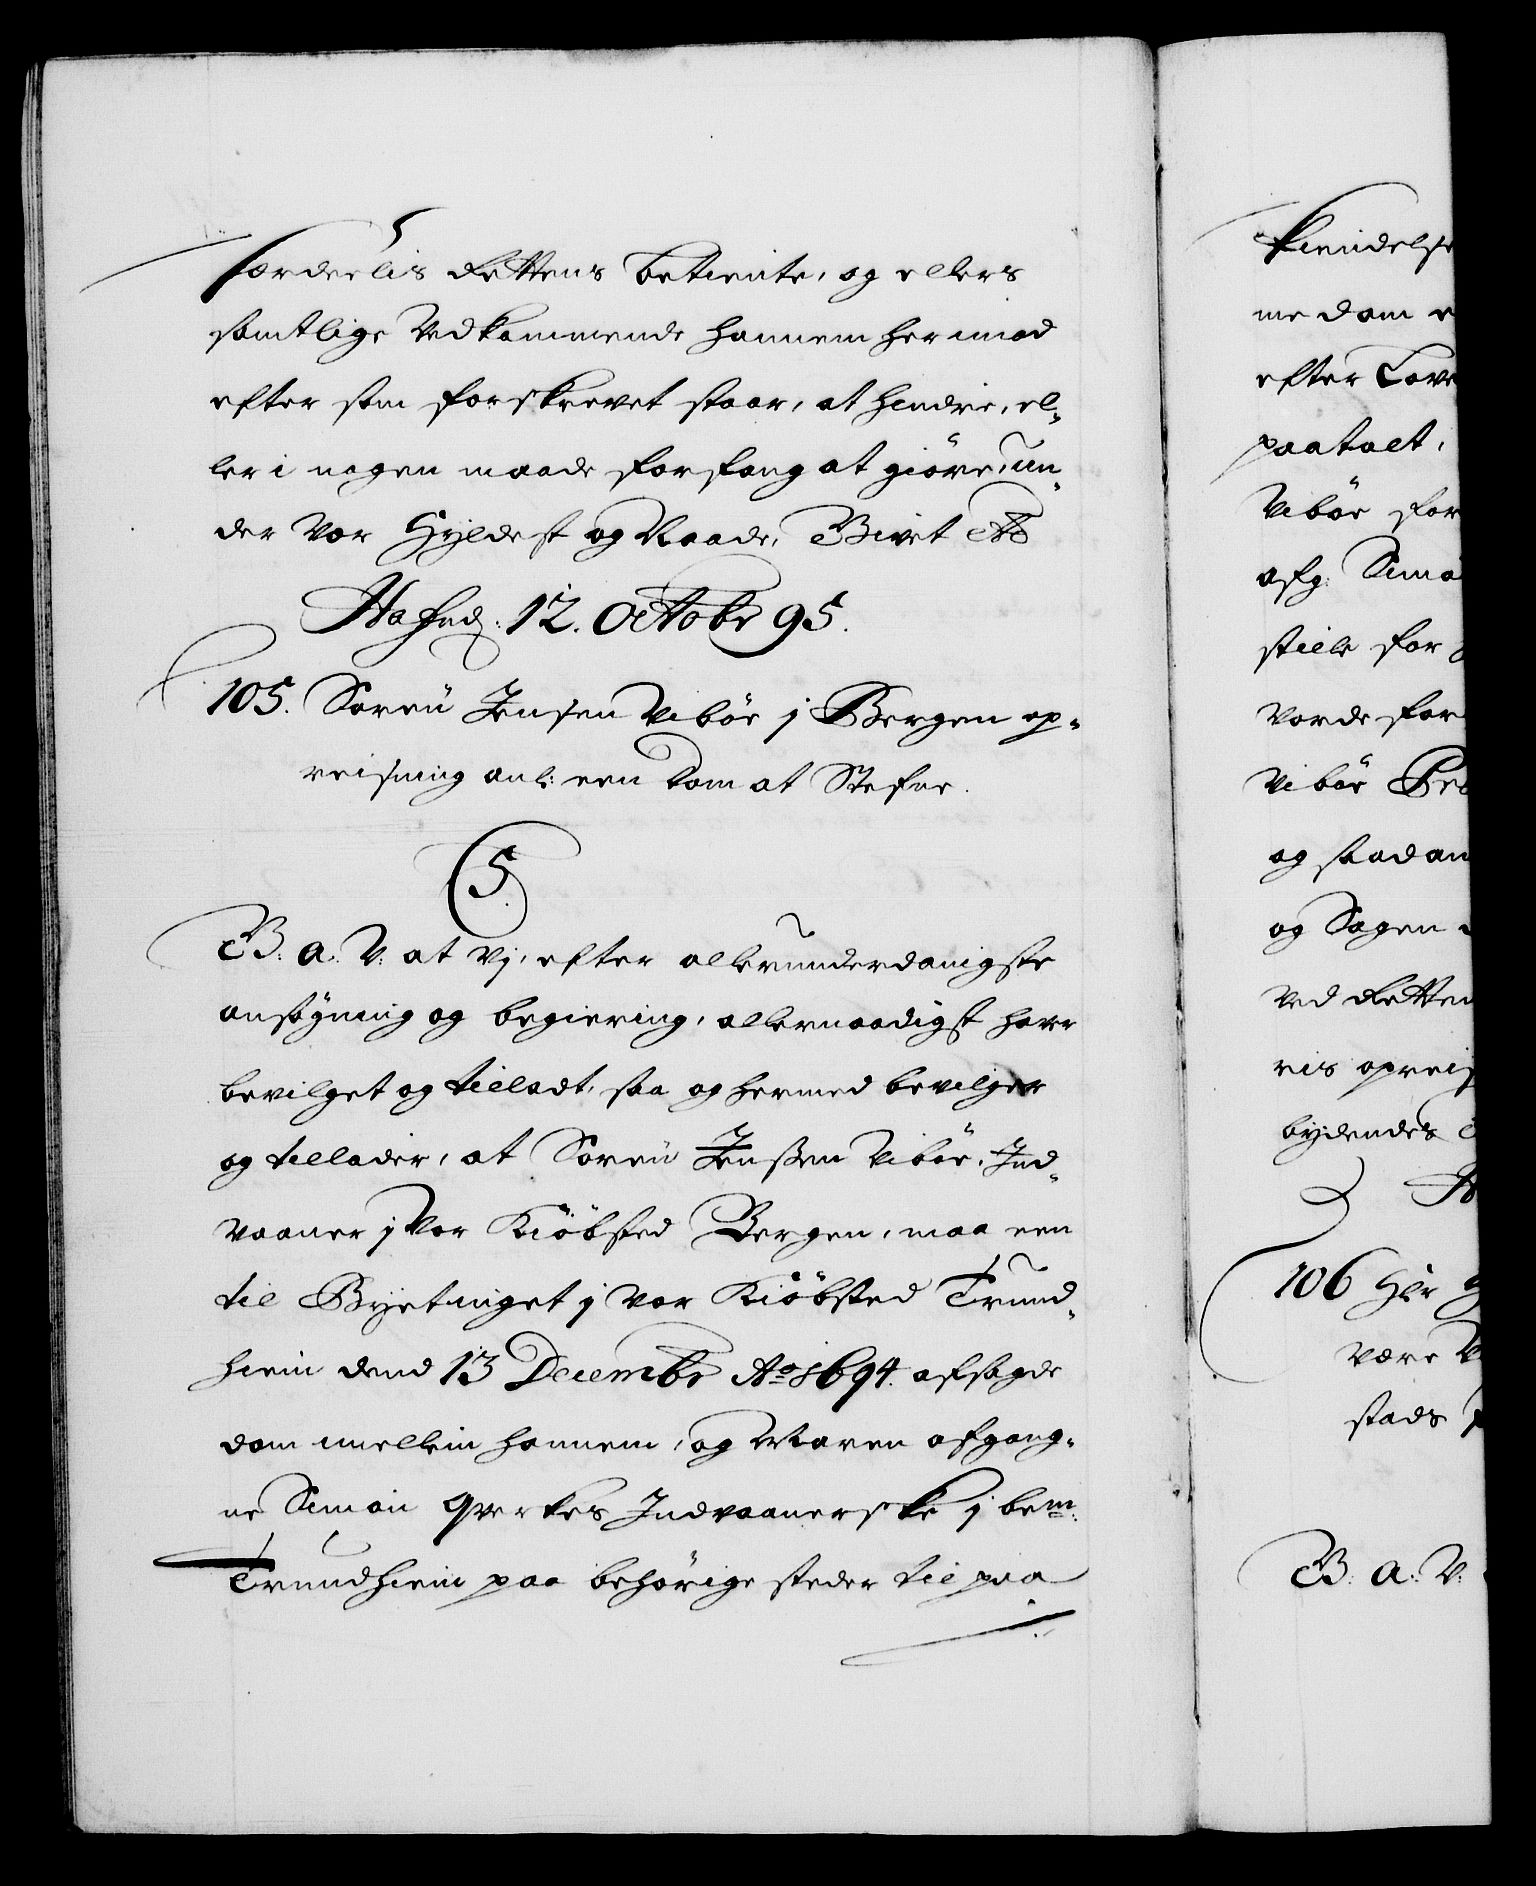 særdeelis Rettens betiente, og ellers
samtlige Vedkommende hannem hermod
efter som forskrevet staar, at hindre, el-
ler i nogen maade forfang at giöre, un-
der vor Hyldest og Naade, Givet
Hafnæ: 12. Octobr 95.
105. Sören Jensen Viböe j Bergen op-
reisning anl: een dom at Stefne.
C5.
G. a. V. at Vj, efter allerunderdanigste
ansögning og begiering, allernaadigst hafr
bevilget og tilladt, saa og hermed bevilger
og tillader, at Sören Jenssen Viböe, Ind-
vaaner j Vor Kiöbsted Bergen, maa een
til Byetinget j vor Kiöbsted Trund-
hiem dend 13 Decembr Ao 1694. afsagde
dom imellem hannem, og Maren afgang-
ne Simon Qverkes Indvaanerske j bem:
Trundhiem paa behörige steder til paa
kiendelse
me dom e
efter Love
paatalt,
Viböe for
afg: Simo
stille for
vorde for
Viböe
og saadan
og Sagen
ved Retten
ris opreis
bydendes
106 Hr
være
stads
G. a. V.